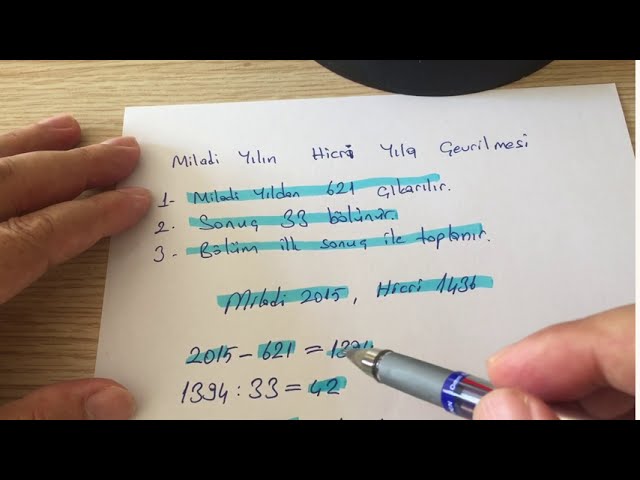 Miladi Yılın Hicri Yıla Çevrilmesi
1- Miladi Yıldan 621 Çıkarılır.
2. Sonuç 33 bölünür.
3- Bölüm ilk sonuç ile toplanır.
Miladi 2015, Hicri 1436
2015 - 621 = 1394
1394 : 33 = 42